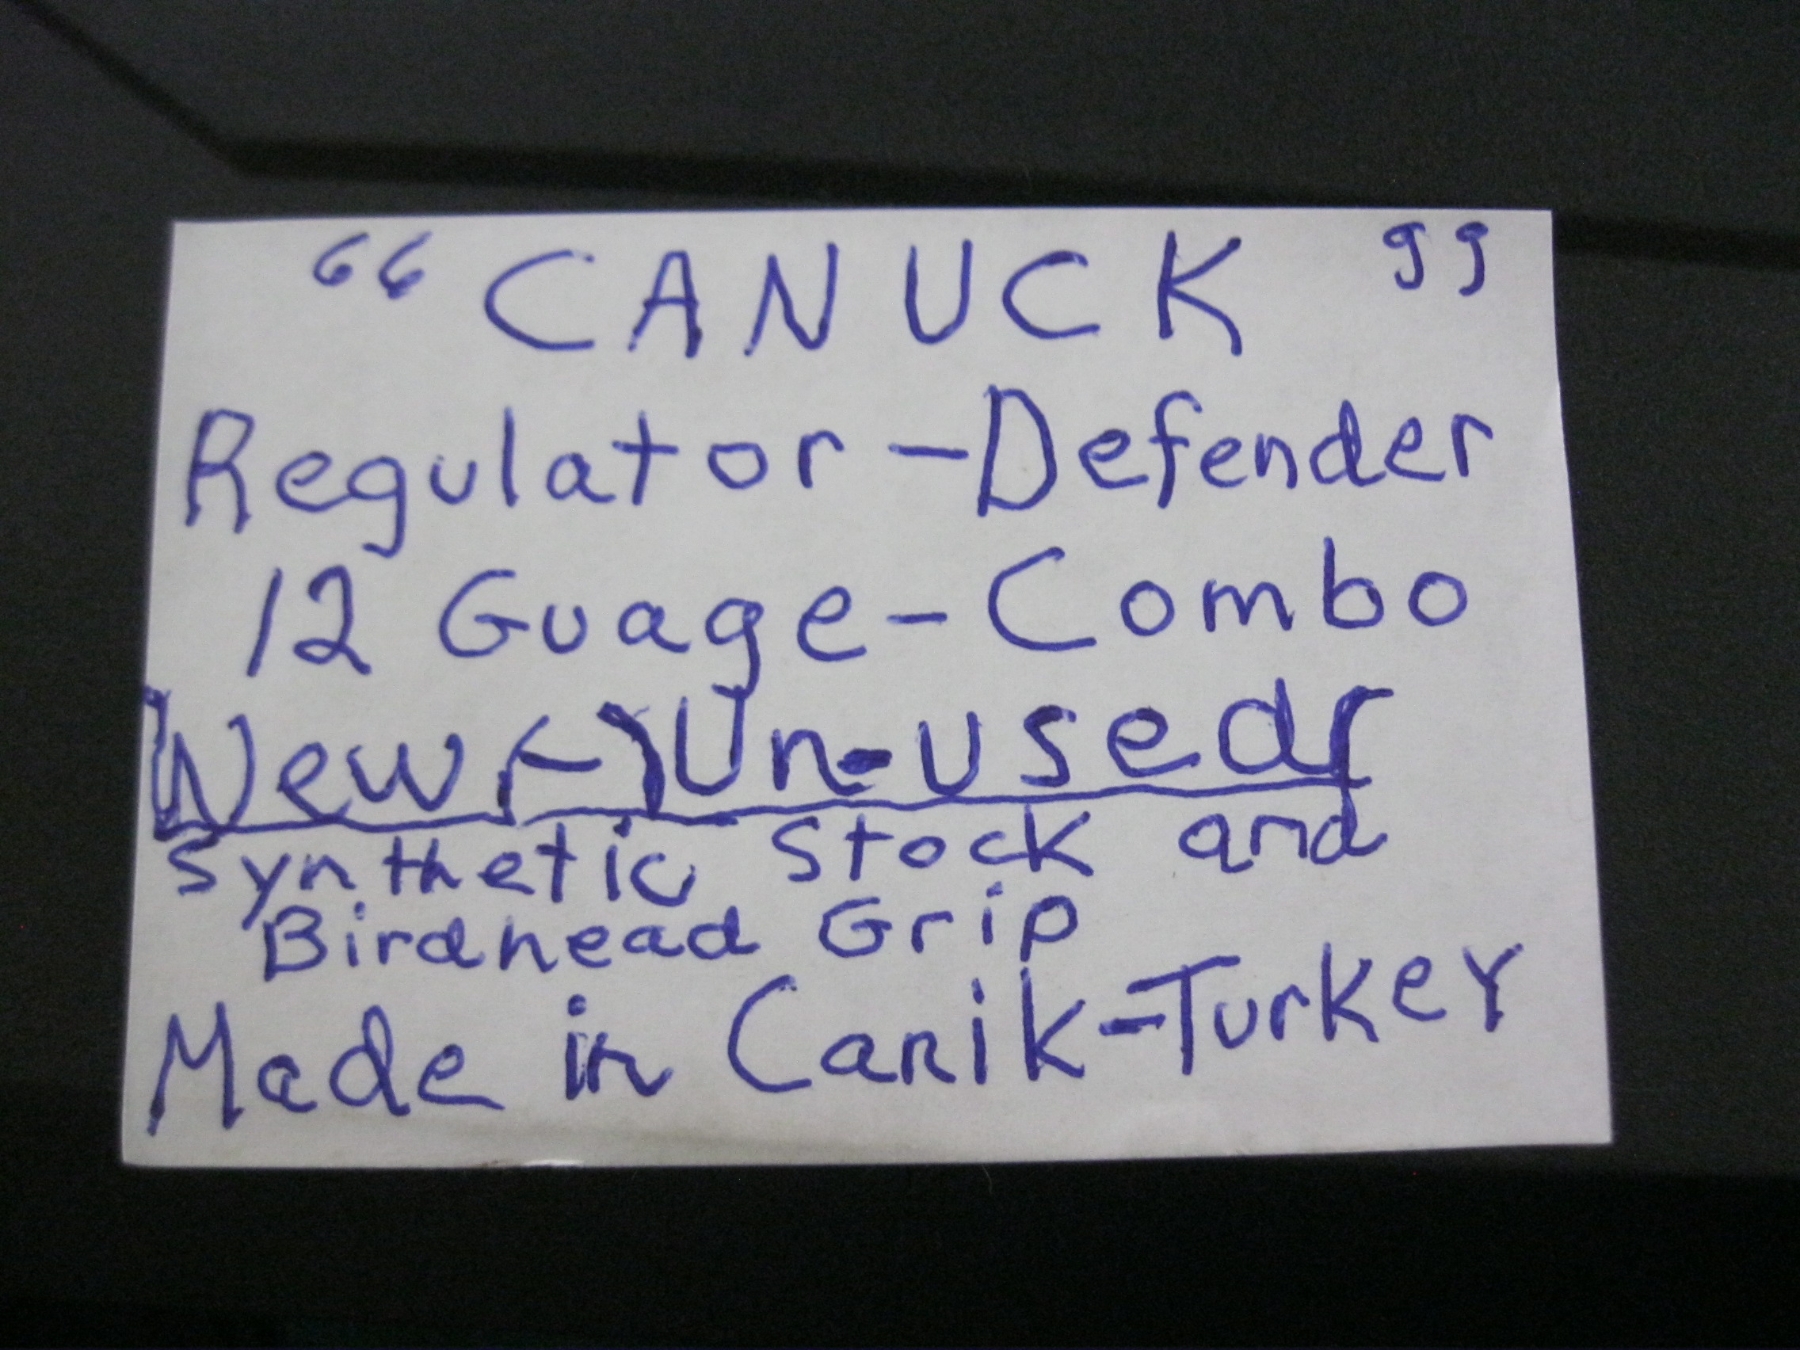 “CANUCK”
Regulator-Defender
12 Guage-Combo
New (-) Un-used
Synthetic Stock and
Birdhead Grip
Made in Canik-Turkey